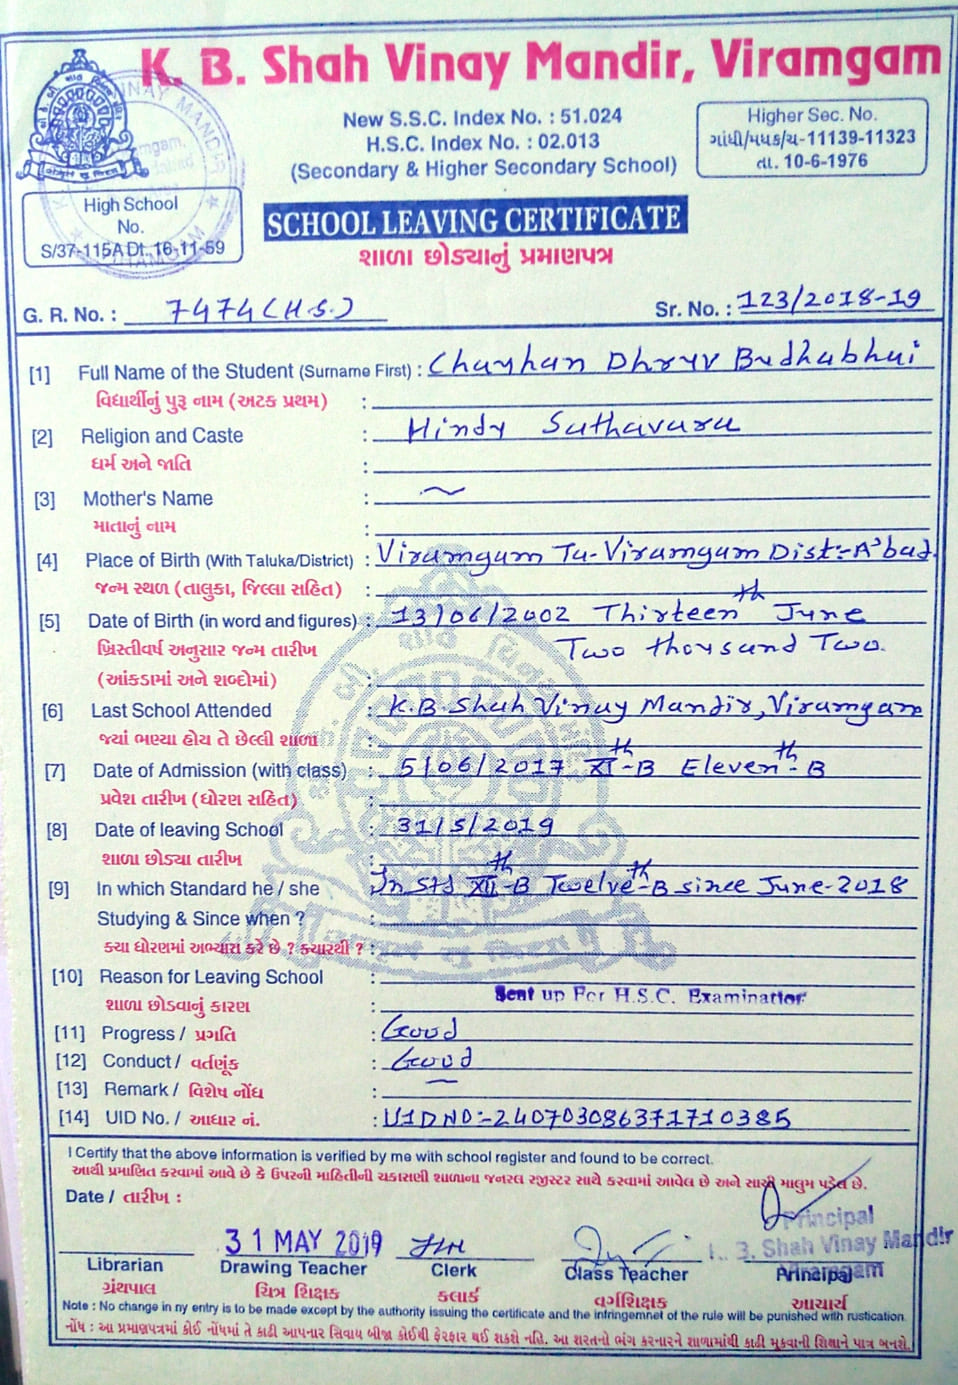 K. B. Shah Vinay Mandir, Viramgam
New S.S.C. Index No. : 51.024
H.S.C. Index No. : 02.013
(Secondary & Higher Secondary School)
Higher Sec. No.
ગાંધી/મઘક/ચ-11139-11323
તા. 10-6-1976
High School
No.
S/37-115A Dt. 16-11-59
SCHOOL LEAVING CERTIFICATE
શાળા છોડ્યાનું પ્રમાણપત્ર
G. R. No. : 7474 (H.S.)
Sr. No. : 123/2018-19
[1] Full Name of the Student (Surname First) : Chauhan Dhruv Budhabhai
વિદ્યાર્થીનું પુરૂ નામ (અટક પ્રથમ) :
[2] Religion and Caste : Hindu Sathavara
ધર્મ અને જાતિ :
[3] Mother's Name : ~
માતાનું નામ :
[4] Place of Birth (With Taluka/District) : Viramgam Ta-Viramgam Dist:-A'bad.
જન્મ સ્થળ (તાલુકા, જિલ્લા સહિત) :
[5] Date of Birth (in word and figures) : 13/06/2002 Thirteenth June
ખ્રિસ્તીવર્ષ અનુસાર જન્મ તારીખ Two thousand Two.
(આંકડામાં અને શબ્દોમાં) :
[6] Last School Attended : K.B. Shah Vinay Mandir, Viramgam
જ્યાં ભણ્યા હોય તે છેલ્લી શાળા :
[7] Date of Admission (with class) : 5/06/2017 XIth-B Eleventh-B
પ્રવેશ તારીખ (ધોરણ સહિત) :
[8] Date of leaving School : 31/5/2019
શાળા છોડ્યા તારીખ :
[9] In which Standard he / she : In std XIIth-B Twelveth-B since June-2018
Studying & Since when ? :
ક્યા ધોરણમાં અભ્યાસ કરે છે ? ક્યારથી ? :
[10] Reason for Leaving School :
શાળા છોડવાનું કારણ : Sent up For H.S.C. Examination
[11] Progress / પ્રગતિ : Good
[12] Conduct / વર્તણૂંક : Good
[13] Remark / વિશેષ નોંધ : —
[14] UID No. / આધાર નં. : UIDNO:-240703086371710385
I Certify that the above information is verified by me with school register and found to be correct.
આથી પ્રમાણિત કરવામાં આવે છે કે ઉપરની માહિતીની ચકાસણી શાળાના જનરલ રજીસ્ટર સાથે કરવામાં આવેલ છે અને સાચી માલુમ પડેલ છે.
Date / તારીખ :
Principal
31 MAY 2019
K. B. Shah Vinay Mandir
Viramgam
Librarian Drawing Teacher Clerk Class Teacher Principal
ગ્રંથપાલ ચિત્ર શિક્ષક કલાર્ક વર્ગશિક્ષક આચાર્ય
Note : No change in ny entry is to be made except by the authority issuing the certificate and the infringemnet of the rule will be punished with rustication.
નોંધ : આ પ્રમાણપત્રમાં કોઈ નોંધમાં તે કાઢી આપનાર સિવાય બીજા કોઈથી ફેરફાર થઈ શકશે નહિ. આ શરતનો ભંગ કરનારને શાળામાંથી કાઢી મૂકવાની શિક્ષાને પાત્ર બનશે.